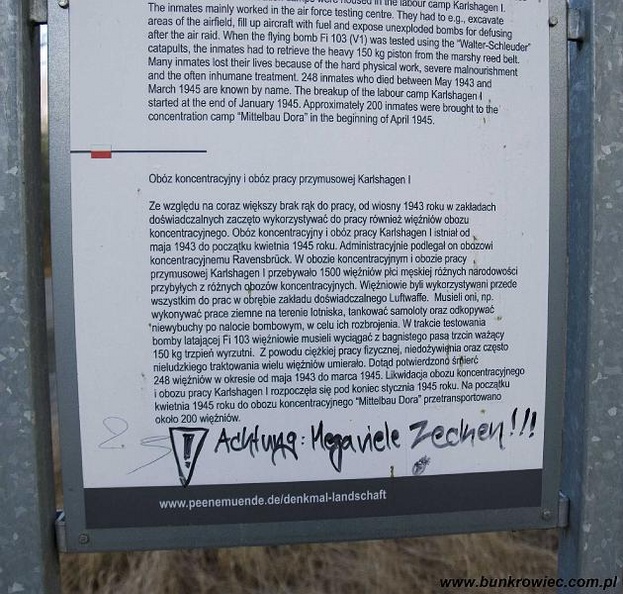 were housed in the labour camp Karlshagen I.
The inmates mainly worked in the air force testing centre. They had to e.g., excavate
areas of the airfield, fill up aircraft with fuel and expose unexploded bombs for defusing
after the air raid. When the flying bomb Fi 103 (V1) was tested using the "Walter-Schleuder"
catapults, the inmates had to retrieve the heavy 150 kg piston from the marshy reed belt.
Many inmates lost their lives because of the hard physical work, severe malnourishment
and the often inhumane treatment. 248 inmates who died between May 1943 and
March 1945 are known by name. The breakup of the labour camp Karlshagen I
started at the end of January 1945. Approximately 200 inmates were brought to the
concentration camp "Mittelbau Dora" in the beginning of April 1945.
Obóz koncentracyjny i obóz pracy przymusowej Karlshagen I
Ze względu na coraz większy brak rąk do pracy, od wiosny 1943 roku w zakładach
doświadczalnych zaczęto wykorzystywać do pracy również więźniów obozu
koncentracyjnego. Obóz koncentracyjny i obóz pracy Karlshagen I istniał od
maja 1943 do początku kwietnia 1945 roku. Administracyjnie podlegał on obozowi
koncentracyjnemu Ravensbrück. W obozie koncentracyjnym i obozie pracy
przymusowej Karlshagen I przebywało 1500 więźniów płci męskiej różnych narodowości
przybyłych z różnych obozów koncentracyjnych. Więźniowie byli wykorzystywani przede
wszystkim do prac w obrębie zakładu doświadczalnego Luftwaffe. Musieli oni, np.
wykonywać prace ziemne na terenie lotniska, tankować samoloty oraz odkopywać
niewybuchy po nalocie bombowym, w celu ich rozbrojenia. W trakcie testowania
bomby latającej Fi 103 więźniowie musieli wyciągać z bagnistego pasa trzcin ważący
150 kg trzpień wyrzutni. Z powodu ciężkiej pracy fizycznej, niedożywienia oraz często
nieludzkiego traktowania wielu więźniów umierało. Dotąd potwierdzono śmierć
248 więźniów w okresie od maja 1943 do marca 1945. Likwidacja obozu koncentracyjnego
i obozu pracy Karlshagen I rozpoczęła się pod koniec stycznia 1945 roku. Na początku
kwietnia 1945 roku do obozu koncentracyjnego "Mittelbau Dora" przetransportowano
około 200 więźniów.
! Achtung: Megaviele Zecken!!!
www.peenemuende.de/denkmal-landschaft
www.bunkrowiec.com.pl